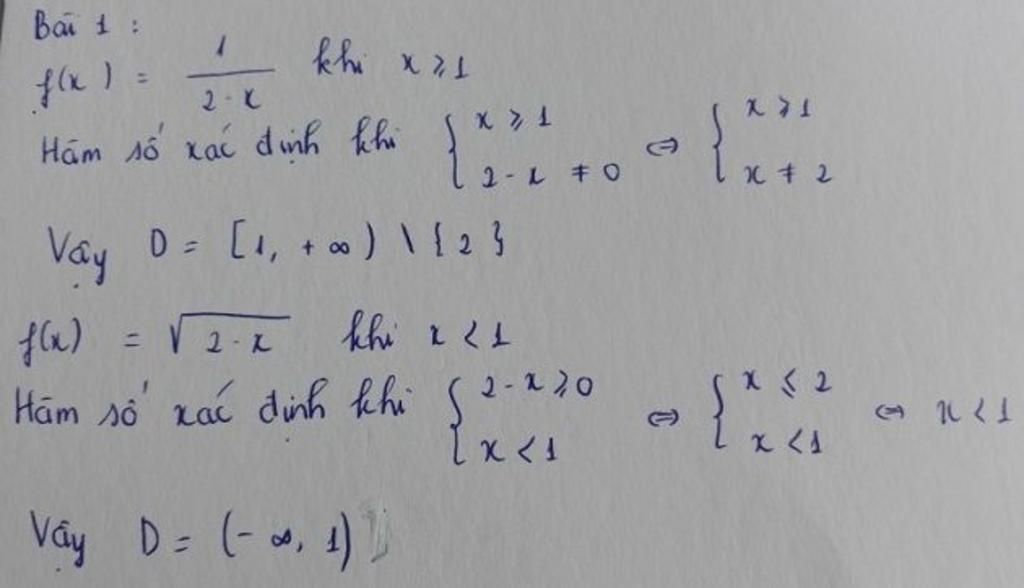 Bài 1 :
f(x) = 1/(2-x) khi x ⩾ 1
Hàm số xác định khi { x ⩾ 1 ; 2-x ≠ 0 ⇔ { x ⩾ 1 ; x ≠ 2
Vậy D = [1, +∞) \ { 2 }
f(x) = √(2-x) khi x < 1
Hàm số xác định khi { 2-x ⩾ 0 ; x < 1 ⇔ { x ⩽ 2 ; x < 1 ⇔ x < 1
Vậy D = (-∞, 1)